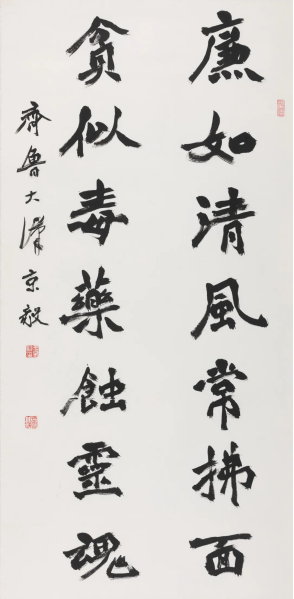 廉如清風常拂面
貪似毒藥蝕靈魂
齊魯大漢京毅